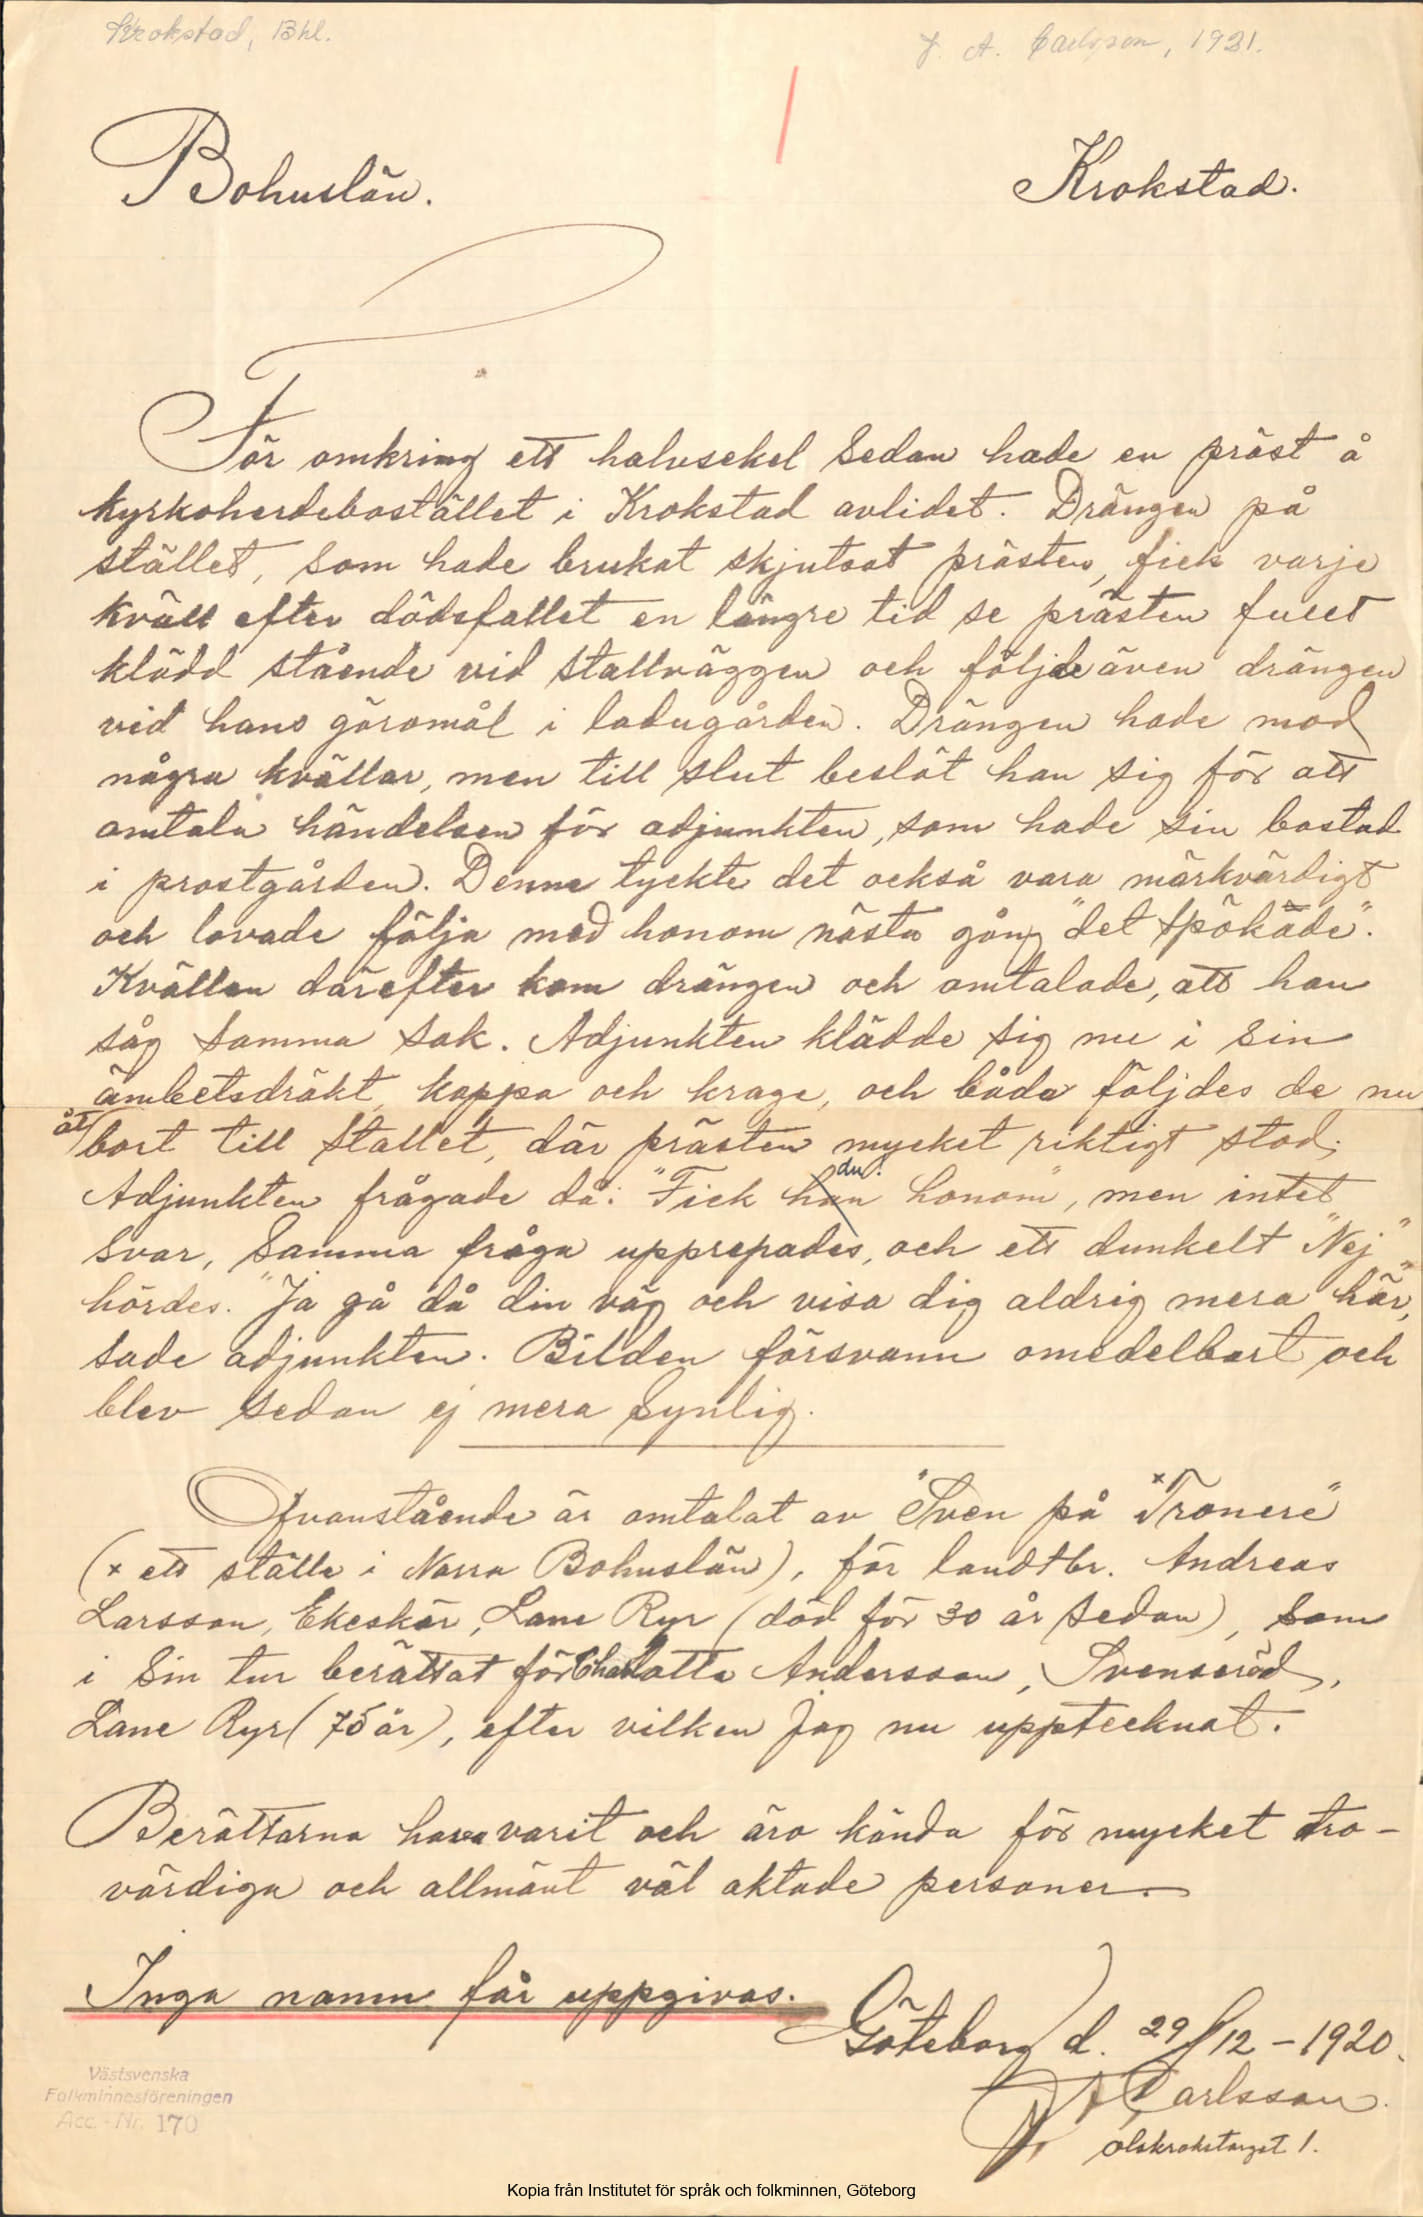 Krokstad, Bhl.
J. A. Carlsson, 1921.
Bohuslän.
Krokstad.
För omkring ett halvsekel sedan hade en präst å
kyrkoherdebostället i Krokstad avlidet. Drängen på
stället, som hade brukat skjutsat prästen, fick varje
kväll efter dödsfallet en längre tid se prästen fullt
klädd stående vid stallväggen och följde även drängen
vid hans göromål i ladugården. Drängen hade mod
några kvällar, men till slut beslöt han sig för att
omtala händelsen för adjunkten, som hade sin bostad
i prostgården. Denne tyckte det också vara märkvärdigt
och lovade följa med honom nästa gång "det spökade".
Kvällen därefter kom drängen och omtalade, att han
såg samma sak. Adjunkten klädde sig nu i sin
ämbetsdräkt, kappa och krage, och båda följdes de nu
åt bort till stallet, där prästen mycket riktigt stod.
Adjunkten frågade då: "Fick han du honom", men intet
svar, Samma fråga upprepades, och ett dunkelt "Nej"
hördes. "Ja gå då din väg och visa dig aldrig mera här",
sade adjunkten. Bilden försvann omedelbart och
blev sedan ej mera synlig.
Ofvanstående är omtalat av "Sven på xTronere"
(x ett ställe i Norra Bohuslän), för landtbr. Andreas
Larsson, Ekeskär, Lane Ryr (död för 30 år sedan), som
i sin tur berättat för Charlotta Andersson, Svenseröd,
Lane Ryr (75 år), efter vilken jag nu upptecknat.
Berättarna hava varit och äro kända för mycket tro-
värdiga och allmänt väl aktade personer.
Inga namn får uppgivas.
Göteborg d. 29/12 - 1920.
J A Carlsson.
Olskrokstorget 1.
Västsvenska
Folkminnesföreningen
Acc.-Nr. 170
Kopia från Institutet för språk och folkminnen, Göteborg